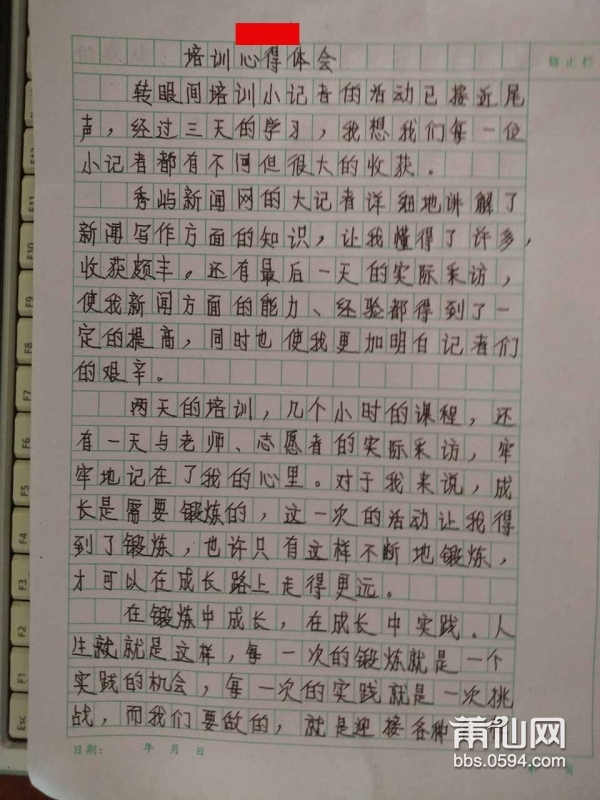 培训心得体会
修正栏
转眼间培训小记者的活动已接近尾
声，经过三天的学习，我想我们每一位
小记者都有不同但很大的收获。
秀屿新闻网的大记者详细地讲解了
新闻写作方面的知识，让我懂得了许多，
收获颇丰。还有最后一天的实际采访，
使我新闻方面的能力、经验都得到了一
定的提高，同时也使我更加明白记者们
的艰辛。
两天的培训，几个小时的课程，还
有一天与老师、志愿者的实际采访，牢
牢地记在了我的心里。对于我来说，成
长是需要锻炼的，这一次的活动让我得
到了锻炼，也许只有这样不断地锻炼，
才可以在成长路上走得更远。
在锻炼中成长，在成长中实践。人
生就就是这样，每一次的锻炼就是一个
实践的机会，每一次的实践就是一次挑
战，而我们要做的，就是迎接各种
日期： 年 月 日
莆仙网
bbs.0594.com
页
F11
F10
F9
F8
F7
F6
F5
F4
F3
F2
F1
Esc